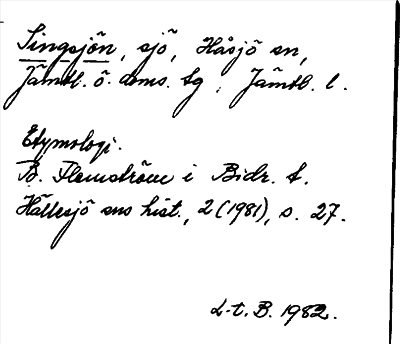 Singsjön, sjö, Håsjö sn,
Jämtl. ö. doms. tg, Jämtl. l.
Etymologi.
B. Flemström i Bidr. t.
Hällesjö sns hist., 2 (1981), s. 27.
L-t. B. 1982.